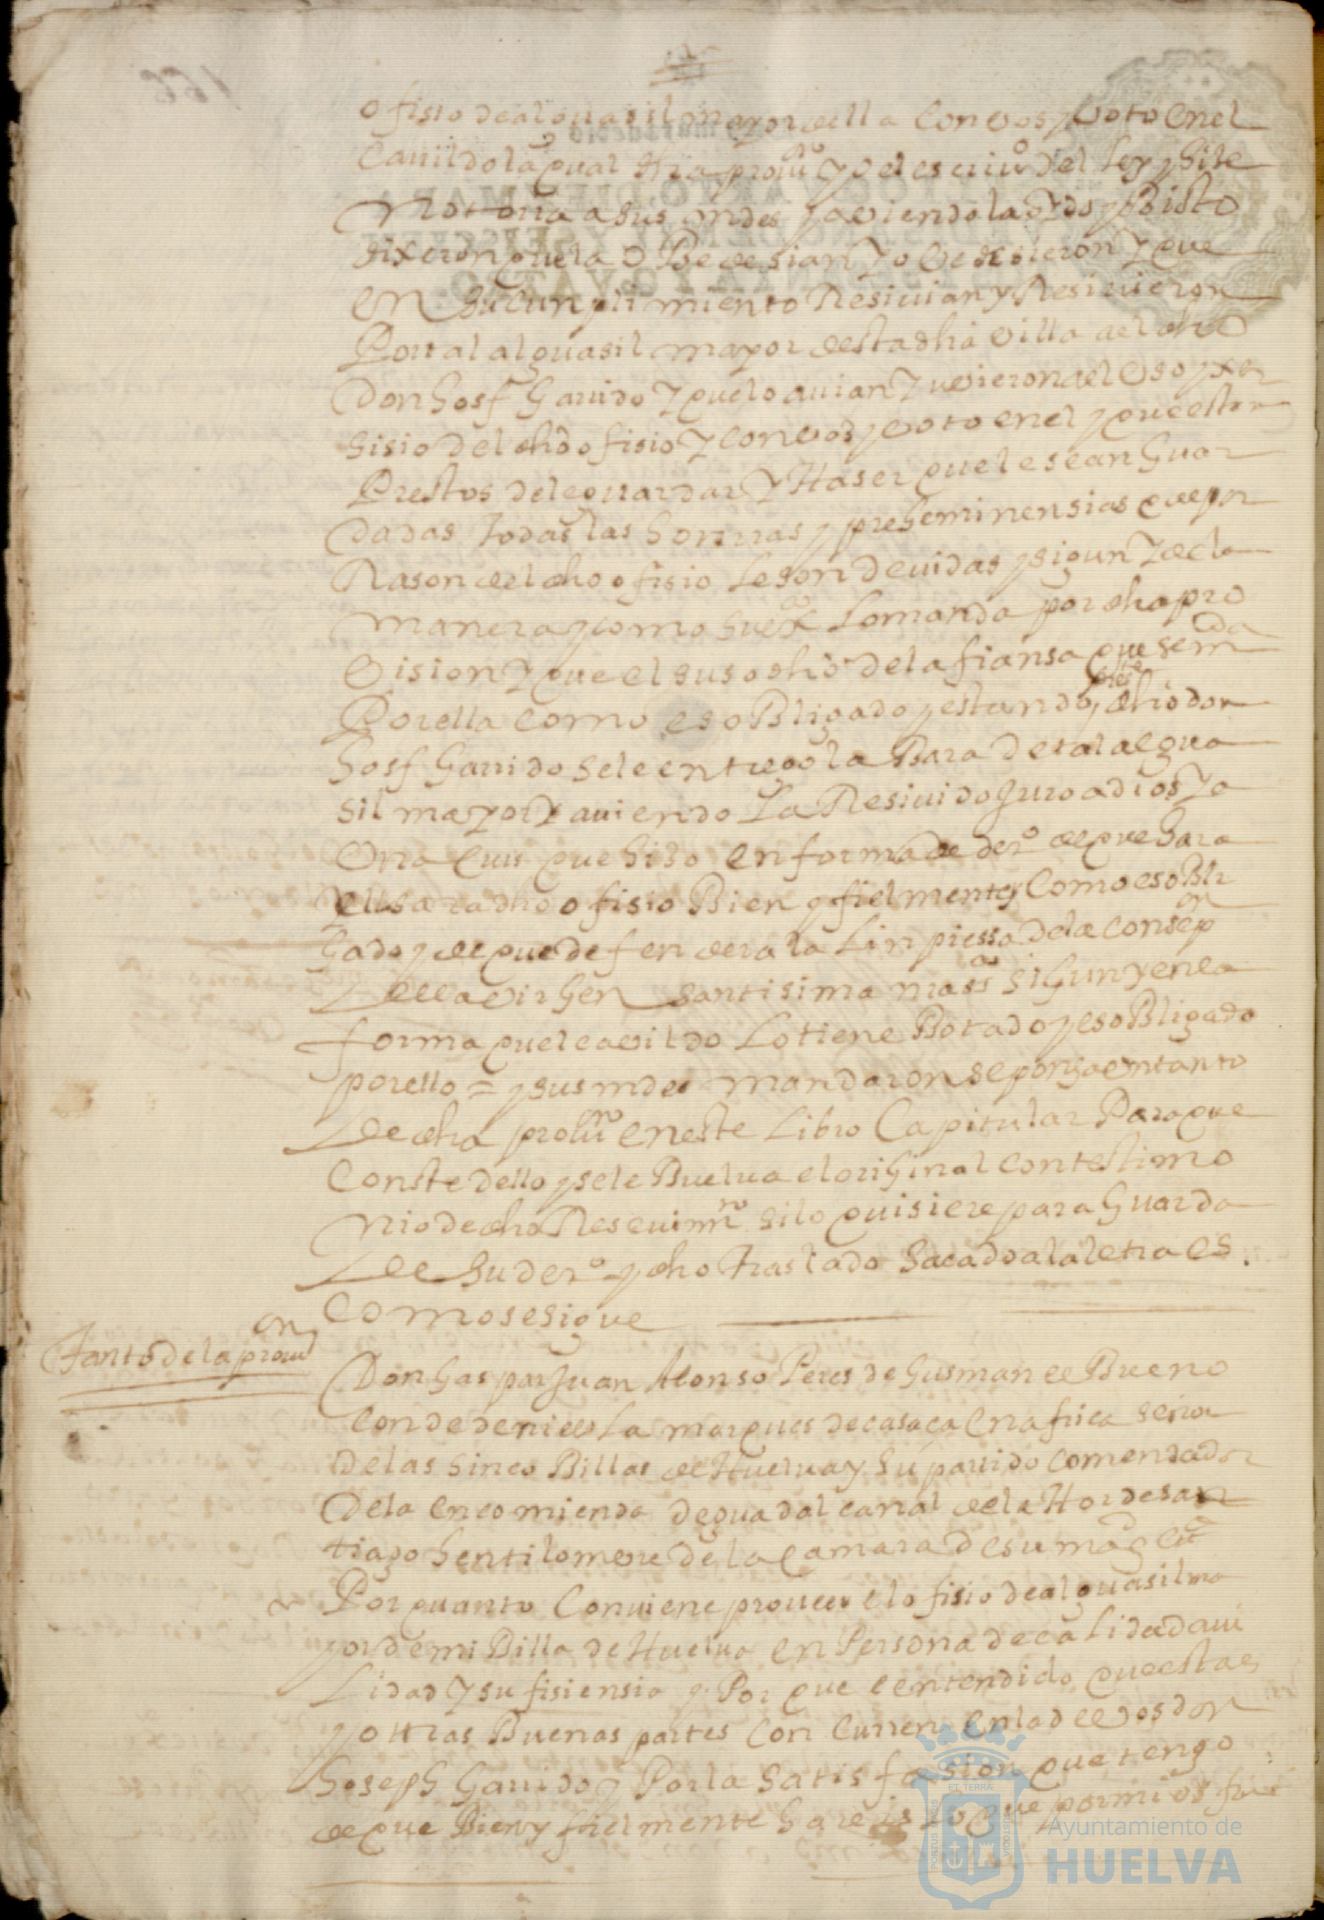 ofisio de alguasil mayor della con vos y voto en el
Cavildo la qual dha provin y o el escrivo del ley y hise
notoria a sus mdes y aviendola oydo y visto
dixeron que la obedesian y obedesieron y que
en su cunplimiento Resivian y Resivieron
Por tal alguasil mayor desta dha villa al dho
Don Hosf Garrido y que lo avian y uvieron al uso y xer
sisio del dho ofisio y con vos y voto en el y que estan
Prestos de le guardar y Haser que le sean Guar
dadas todas las honrras y preheminensias que por
Rason del dho ofisio le son devidas sigun y de la
manera y como su exa lo manda por dha pro
vision y que el susodho de la fiansa que se mda
Por ella como es obligado y estando preste dho don
Hosf Garrido se le entrego la Bara de tal algua
sil mayor y aviendo la Resivido Juro a dios y a
una cruz que hiso en forma de dero de que hara
y usara dho ofisio Bien y fielmente y como es obli
gado y de que defendera la linpiessa de la consepon
de la virgen santisima maa sigun y en la
forma que el cavildo lo tiene Botado y es obligado
por ello = y sus mdes mandaron se ponga en tanto
de dha provin en este Libro Capitular Para que
Conste dello y se le Buelva el original con testimo
nio de dho Resevimto si lo quisiere para Guarda
de su dero y dho traslado sacado a la letra es
Como se sigue
Tanto de la provon
Don Gaspar Juan Alonso Peres de Gusman el Bueno
Conde de niebla marques de casasa en africa señor
de las sinco Billas de Huelva y su partido comendador
de la encomienda de guadalcanal de la Horde san
tiago Gentilombre de la camara de su magd etta
Por quanto Conviene proveer el ofisio de alguasil ma
yor de mi Billa de Huelva en Persona de calidad avi
lidad y sufisiensia y Por que e entendido que estas
y otras Buenas partes concurren en la de vos don
Hoseph Garrido y Por la satisfasion que tengo
de que Bien y fielmente hareis lo que por mi os fue
ET TERRÆ
Ayuntamiento de
HUELVA